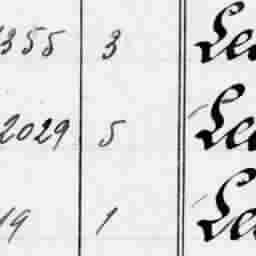 1355 3 Le
2029 5 Le
19 1 Le